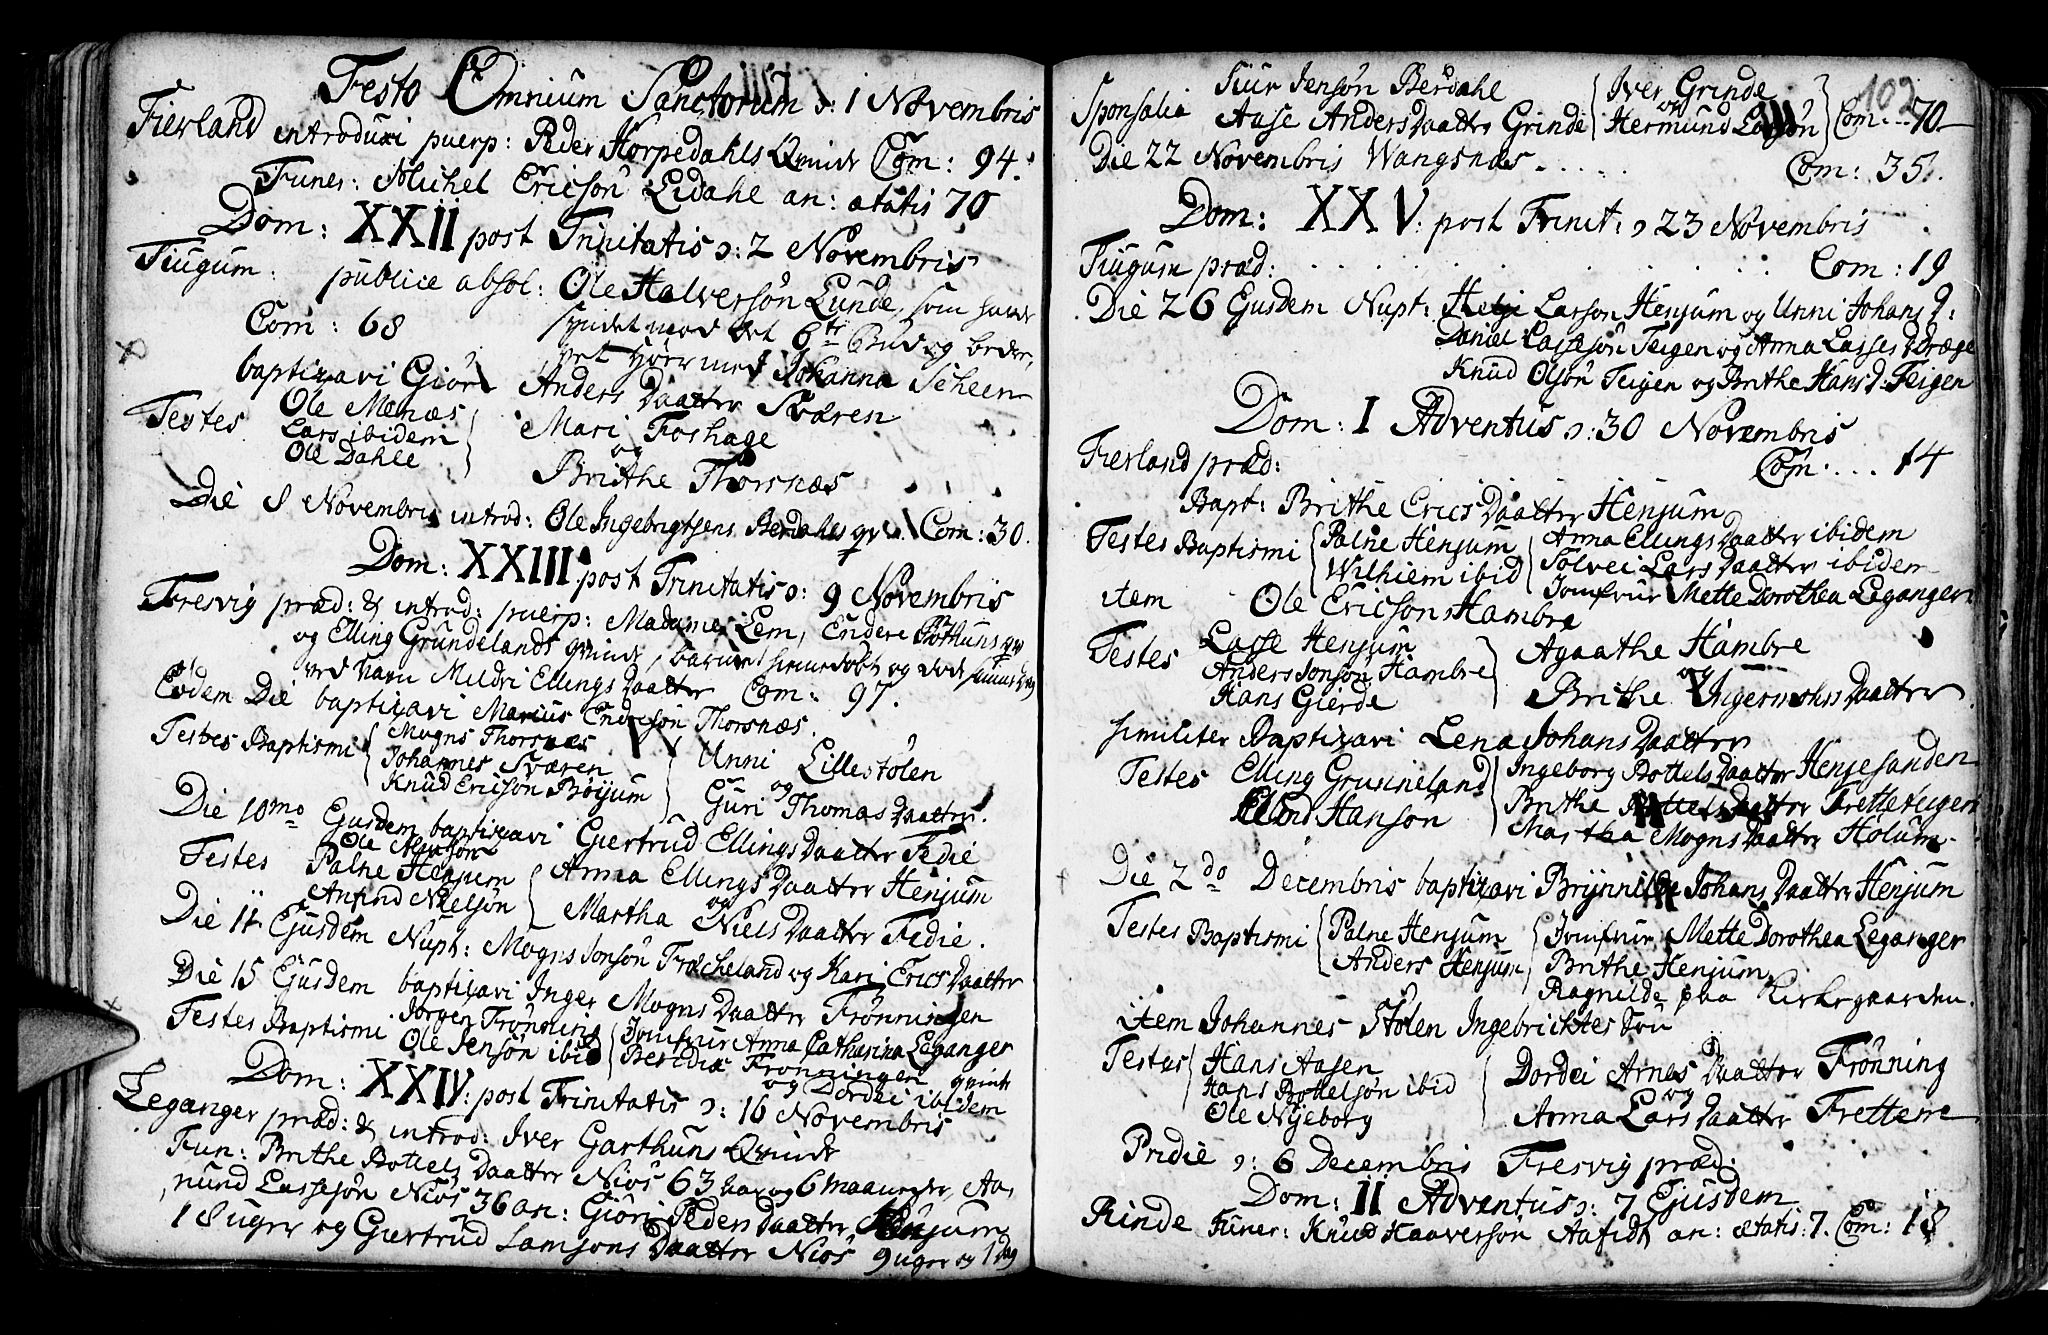 Festo Omnium Sanctorum ɔ: 1 Novembris
Fierland introduxi puerp: Peder Horpedahls Qvinde Com: 94.
Funer: Michel Ericsön Eidahl an: ætatis 70
Dom: XXII post Trinitatis ɔ: 2 Novembris
Tiugum: publice absol: Ole Halversön Lunde, som hafde
Com: 68 syndet mod det 6te Bud og
baptizavi Giöri Anders Daatter Sværen
Johanna Scheen
Testes Ole Menæs
Lars ibidem
Ole Dahle
Mari Foshage
og
Brithe Thorsnæs
Die 8 Novembris introd: Ole Ingebrigtsens Berdahls qv. Com: 30.
Dom: XXIII post Trinitatis ɔ: 9 Novembris
Fresvig præd: & introd: puerp: Madame Lem, Endere Böthuns qv
og Elling Grundelands qvinde, barnet hiemedöbt og död
ved Navn Mildri Ellings Daatter Com: 97.
Eodem Die baptizavi Marius Endresön Thorsnæs.
Testes Baptismi Mogns Thorsnæs
Johannes Sværen
Knud Ericsön Böijum
Unni Lillestölen
og
Guri Thomas Daatter.
Die 10mo Ejusdem baptizavi Giertrud Ellings Daatter Fedie
Testes Palne Henjum
Anfind Nielsön
Anna Ellings Daatter Henjum
og
Martha Niels Daatter Fedie.
Die 11 Ejusdem Nupt: Mogns Jonsön Fræcheland og Kari Erics Daatter
Die 15 Ejusdem baptizavi Inger Mogns Daatter Frönningen
Testes Baptismi Jörgen Frönning
Ole Jensön ibid
Jomfrue Anna Catharina Leganger
Beridia Frönningen qvinde
og Dordei ibidem
Dom: XXIV: post Trinitatis ɔ: 16 Novembris
Leganger præd: & introd: Iver Garthuns Qvinde
Fun: Brithe Bottels Daatter Niös 63 aar og 6 maaneder, Aa,
mund Lassesön Niös 36 an: Giöri Peders Daatter Henjum
18 uger og Giertrud Samsons Daatter Niös 9 uger og 1 dag
102
Sponsalia Siur Jensön Berdahl
Aase Anders Daatter Grinde
Iver Grinde
og
Hermund Larsön
Com: 70
Die 22 Novembris Wangsnæs . . . . . Com: 35.
Dom: XXV: post Trinit: ɔ 23 Novembris
Tiugum præd: . . . . . Com: 19
Die 26 Ejusdem Nupt: Helje Larson Henjum og Unni Johans D:
Daniel Lassesön Teigen og Anna Lasses D Dræge
Knud Olsön Teigen og Brithe Hans D: Teigen
Dom: I Adventus ɔ: 30 Novembris
Fierland præd: Com: . . . 14
Bapt: Brithe Erics Daatter Henjum
Testes Baptismi Palne Henjum
Wilhiem ibid
Anna Ellings Daatter ibidem
Solvei Lars Daatter ibidem
Jomfrue Mette Dorothea Leganger
item Ole Ericson Hambre
Testes Lasse Henjum
Anders Jonson Hambre
Hans Gierde
Agaathe Hambre
og
Brithe Ingermohns Daatter
similiter Baptizavi Lena Johans Daatter
Testes Elling Grusineland
Ellend Hanson
Ingeborg Bottels Daatter Henjesanden
Brithe Bottels Daatter Fretteteigen
Martha Mogns Daatter Holum
Die 2do Decembris baptizavi Brynnilde Johans Daatter Henjum
Testes Baptismi Palne Henjum
Anders Henjum
Jomfrue Mette Dorothea Leganger
Brithe Henjum
Ragnilde paa Kirkegaarden.
item Johannes Stölen Ingebricktes Sön
Testes Hans Aasen
Hans Bottelsön ibid
Ole Nyeborg
Dordei Arnes Daatter Frönning
og
Anna Lars Daatter Frettem
Pridie ɔ: 6 Decembris Fresvig præd:
Dom: II Adventus ɔ: 7 Ejusdem
Rinde Funer: Knud Haaverson Aafidt an: ætatis: 7. Com: 18